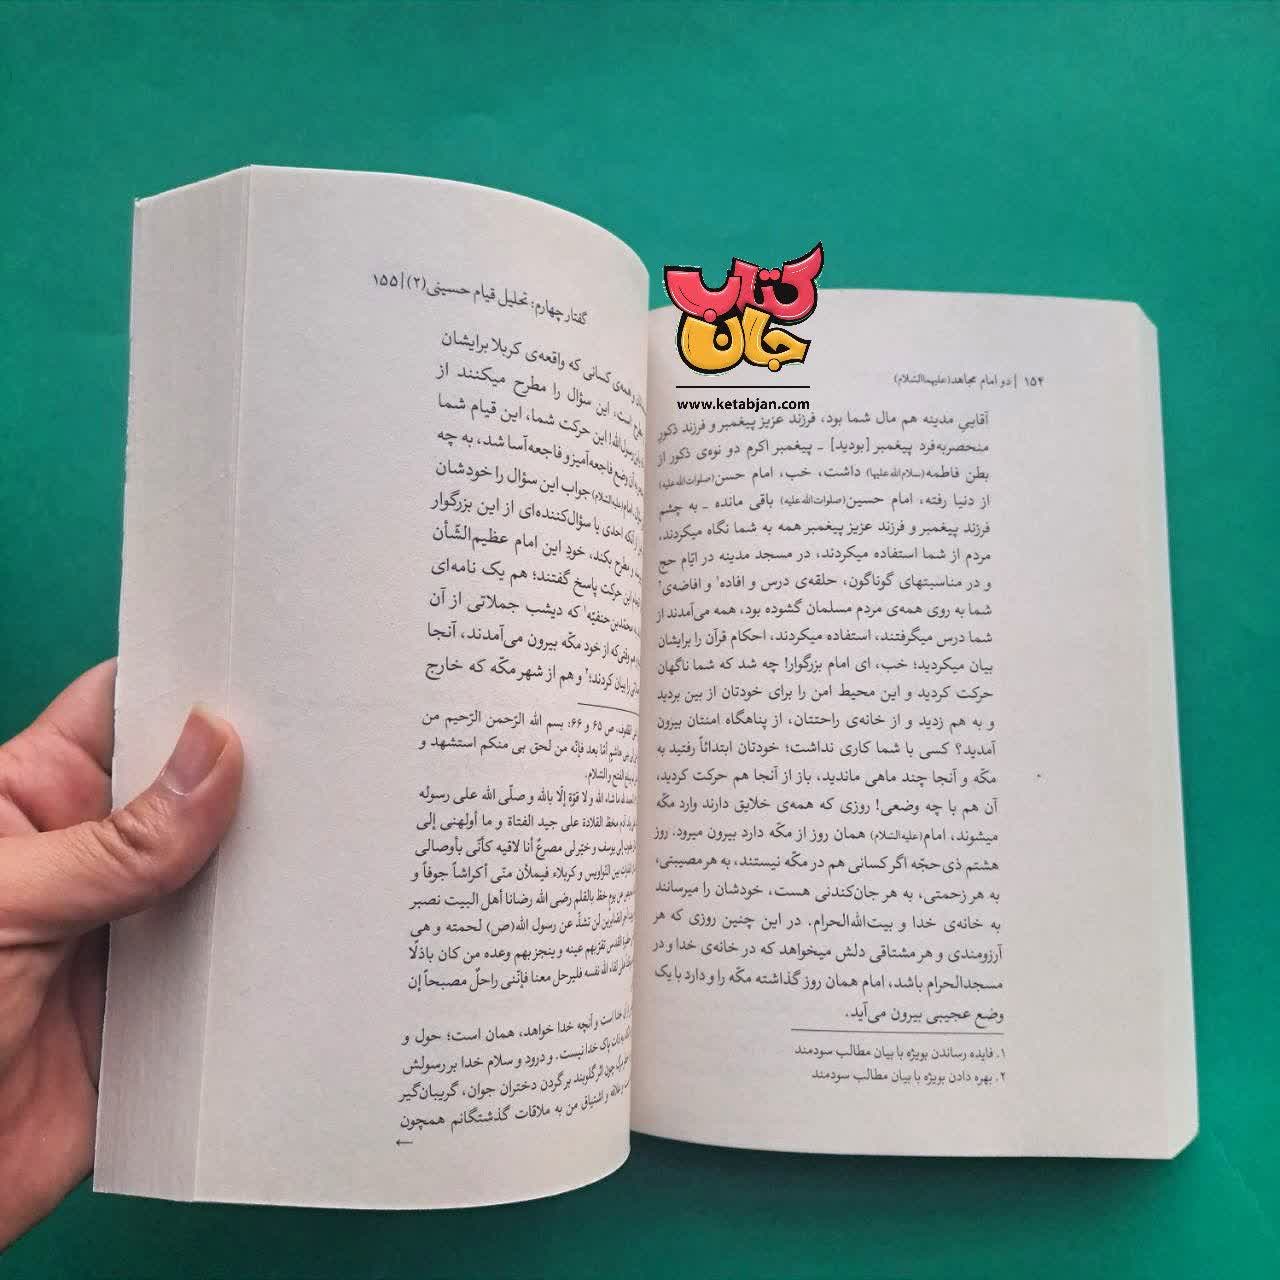 کتاب
جان
www.ketabjan.com
۱۵۴ | دو امام مجاهد(علیهماالسّلام)
آقاییِ مدینه هم مال شما بود، فرزند عزیز پیغمبر و فرزند ذکورِ
منحصربه‌فرد پیغمبر [بودید] ـ پیغمبر اکرم دو نوه‌ی ذکور از
بطن فاطمه(سلام‌الله‌علیها) داشت، خب، امام حسن(صلوات‌الله‌علیه)
از دنیا رفته، امام حسین(صلوات‌الله‌علیه) باقی مانده ـ به چشم
فرزند پیغمبر و فرزند عزیز پیغمبر همه به شما نگاه میکردند،
مردم از شما استفاده میکردند، در مسجد مدینه در ایّام حج
و در مناسبتهای گوناگون، حلقه‌ی درس و افاده۱ و افاضه‌ی۲
شما به روی همه‌ی مردم مسلمان گشوده بود، همه می‌آمدند از
شما درس میگرفتند، استفاده میکردند، احکام قرآن را برایشان
بیان میکردید؛ خب، ای امام بزرگوار! چه شد که شما ناگهان
حرکت کردید و این محیط امن را برای خودتان از بین بردید
و به هم زدید و از خانه‌ی راحتتان، از پناهگاه امنتان بیرون
آمدید؟ کسی با شما کاری نداشت؛ خودتان ابتدائاً رفتید به
مکّه و آنجا چند ماهی ماندید، باز از آنجا هم حرکت کردید،
آن هم با چه وضعی! روزی که همه‌ی خلایق دارند وارد مکّه
میشوند، امام(علیه‌السّلام) همان روز از مکّه دارد بیرون میرود. روز
هشتم ذی حجّه اگر کسانی هم در مکّه نیستند، به هر مصیبتی،
به هر زحمتی، به هر جان‌کندنی هست، خودشان را میرسانند
به خانه‌ی خدا و بیت‌الله‌الحرام. در این چنین روزی که هر
آرزومندی و هر مشتاقی دلش میخواهد که در خانه‌ی خدا و در
مسجدالحرام باشد، امام همان روز گذاشته مکّه را و دارد با یک
وضع عجیبی بیرون می‌آید.
۱. فایده رساندن بویژه با بیان مطالب سودمند
۲. بهره دادن بویژه با بیان مطالب سودمند
گفتار چهارم: تحلیل قیام حسینی(۲) | ۱۵۵
و همه‌ی کسانی که واقعه‌ی کربلا برایشان
است، این سؤال را مطرح میکنند از
رسول‌الله! این حرکت شما، این قیام شما
به آن وضع فاجعه‌آمیز و فاجعه‌آسا شد، به چه
امام(علیه‌السّلام) جواب این سؤال را خودشان
آنکه احدی یا سؤال‌کننده‌ای از این بزرگوار
مطرح بکند، خودِ این امام عظیم‌الشّأن
این حرکت پاسخ گفتند؛ هم یک نامه‌ای
محمّدبن‌حنفیّه۱ که دیشب جملاتی از آن
وقتی که از خود مکّه بیرون می‌آمدند، آنجا
را بیان کردند؛۲ و هم از شهر مکّه که خارج
ص ۶۵ و ۶۶؛ بسم الله الرّحمن الرّحیم من
بنی هاشمٍ أمّا بعد فإنّه من لحق بی منکم استشهد و
الفتح و السّلام.
لله ما شاء الله و لا قوّة إلّا بالله و صلّی الله علی رسوله
آدم مخطّ القلادة علی جید الفتاة و ما أولهنی إلی
إلی یوسف و خیّر لی مصرعٌ أنا لاقیه کأنّی بأوصالی
بین النّواویس و کربلاء فیملأن منّی أکراشاً جوفاً و
عن یومٍ خطّ بالقلم رضی الله رضانا أهل البیت نصبر
لن تشذّ عن رسول الله(ص) لحمته و هی
القدس تقرّ بهم عینه و ینجز بهم وعده من کان باذلًا
لقاء الله نفسه فلیرحل معنا فإنّنی راحلٌ مصبحاً إن
خدا است و آنچه خدا خواهد، همان است؛ حول و
به ذات پاک خدا نیست. و درود و سلام خدا بر رسولش
مرگ چون اثر گلوبند بر گردن دختران جوان، گریبان‌گیر
و اشتیاق من به ملاقات گذشتگانم همچون
←